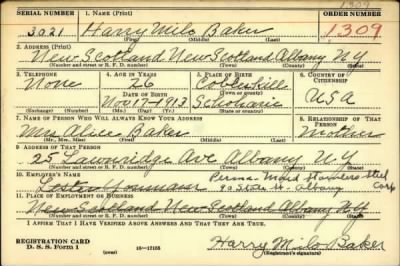 1309
SERIAL NUMBER 1. NAME (Print) ORDER NUMBER
3021 Harry Milo Baker 1309
(First) (Middle) (Last)
2. ADDRESS (Print)
New Scotland New Scotland Albany N.Y.
(Number and street or R. F. D. number) (Town) (County) (State)
3. TELEPHONE 4. AGE IN YEARS 5. PLACE OF BIRTH 6. COUNTRY OF CITIZENSHIP
None 26 Cobleskill
DATE OF BIRTH (Town or county)
Nov 17-1913 Schoharie USA
(Exchange) (Number) (Mo.) (Day) (Yr.) (State or country)
7. NAME OF PERSON WHO WILL ALWAYS KNOW YOUR ADDRESS 8. RELATIONSHIP OF THAT PERSON
Mrs Alice Baker Mother
(Mr., Mrs., Miss) (First) (Middle) (Last)
9. ADDRESS OF THAT PERSON
25 Lawnridge Ave Albany N.Y.
(Number and street or R. F. D. number) (Town) (County) (State)
10. EMPLOYER'S NAME Perma-Maid Stainless Steel
Lester 90 State St. Albany Corp
11. PLACE OF EMPLOYMENT OR BUSINESS
New Scotland New Scotland Albany NY
(Number and street or R. F. D. number) (Town) (County) (State)
I AFFIRM THAT I HAVE VERIFIED ABOVE ANSWERS AND THAT THEY ARE TRUE.
REGISTRATION CARD
D. S. S. Form 1 16—17105 Harry Milo Baker
(Registrant's signature)